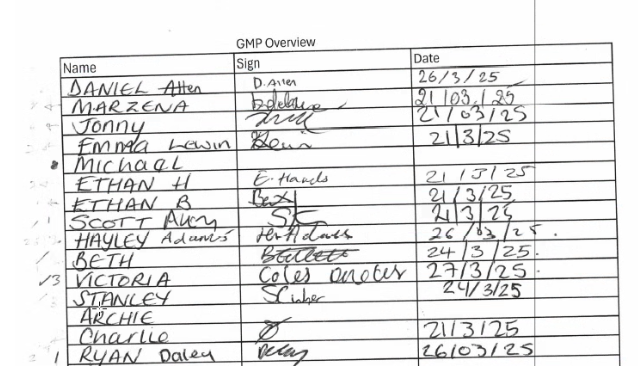 GMP Overview
Name Sign Date
DANIEL Allen D. Allen 26/3/25
MARZENA 21/03/25
Jonny 21/03/25
Emma Lewin 21/3/25
Michael
ETHAN H 21/3/25
ETHAN B 21/3/25
SCOTT 21/3/25
HAYLEY Adams 26/03/25.
BETH 24/3/25.
√3 VICTORIA Coles 27/3/25.
STANLEY 24/3/25
ARCHIE
Charlie 21/3/25
1 RYAN Daley 26/03/25